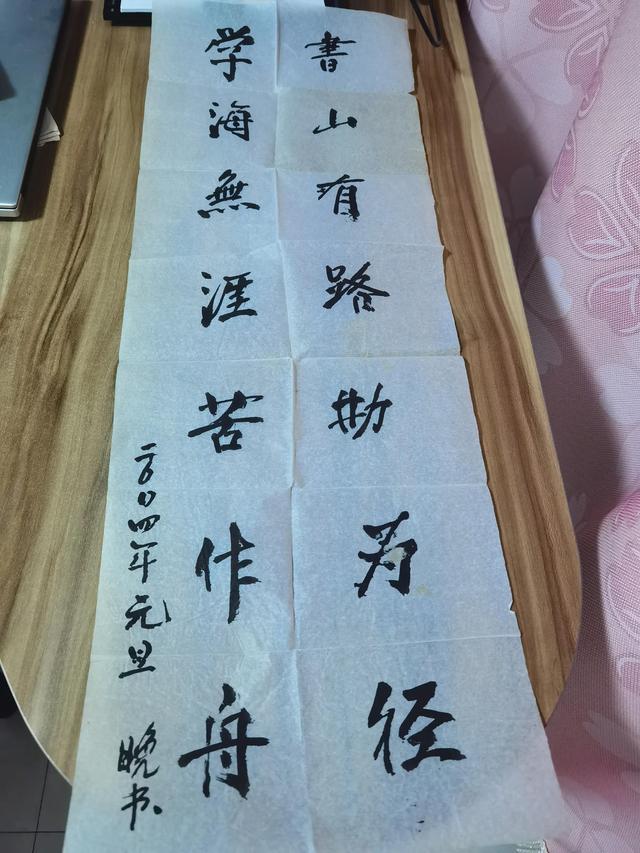 書山有路勤為径
学海無涯苦作舟
二〇〇四年元旦 晚书